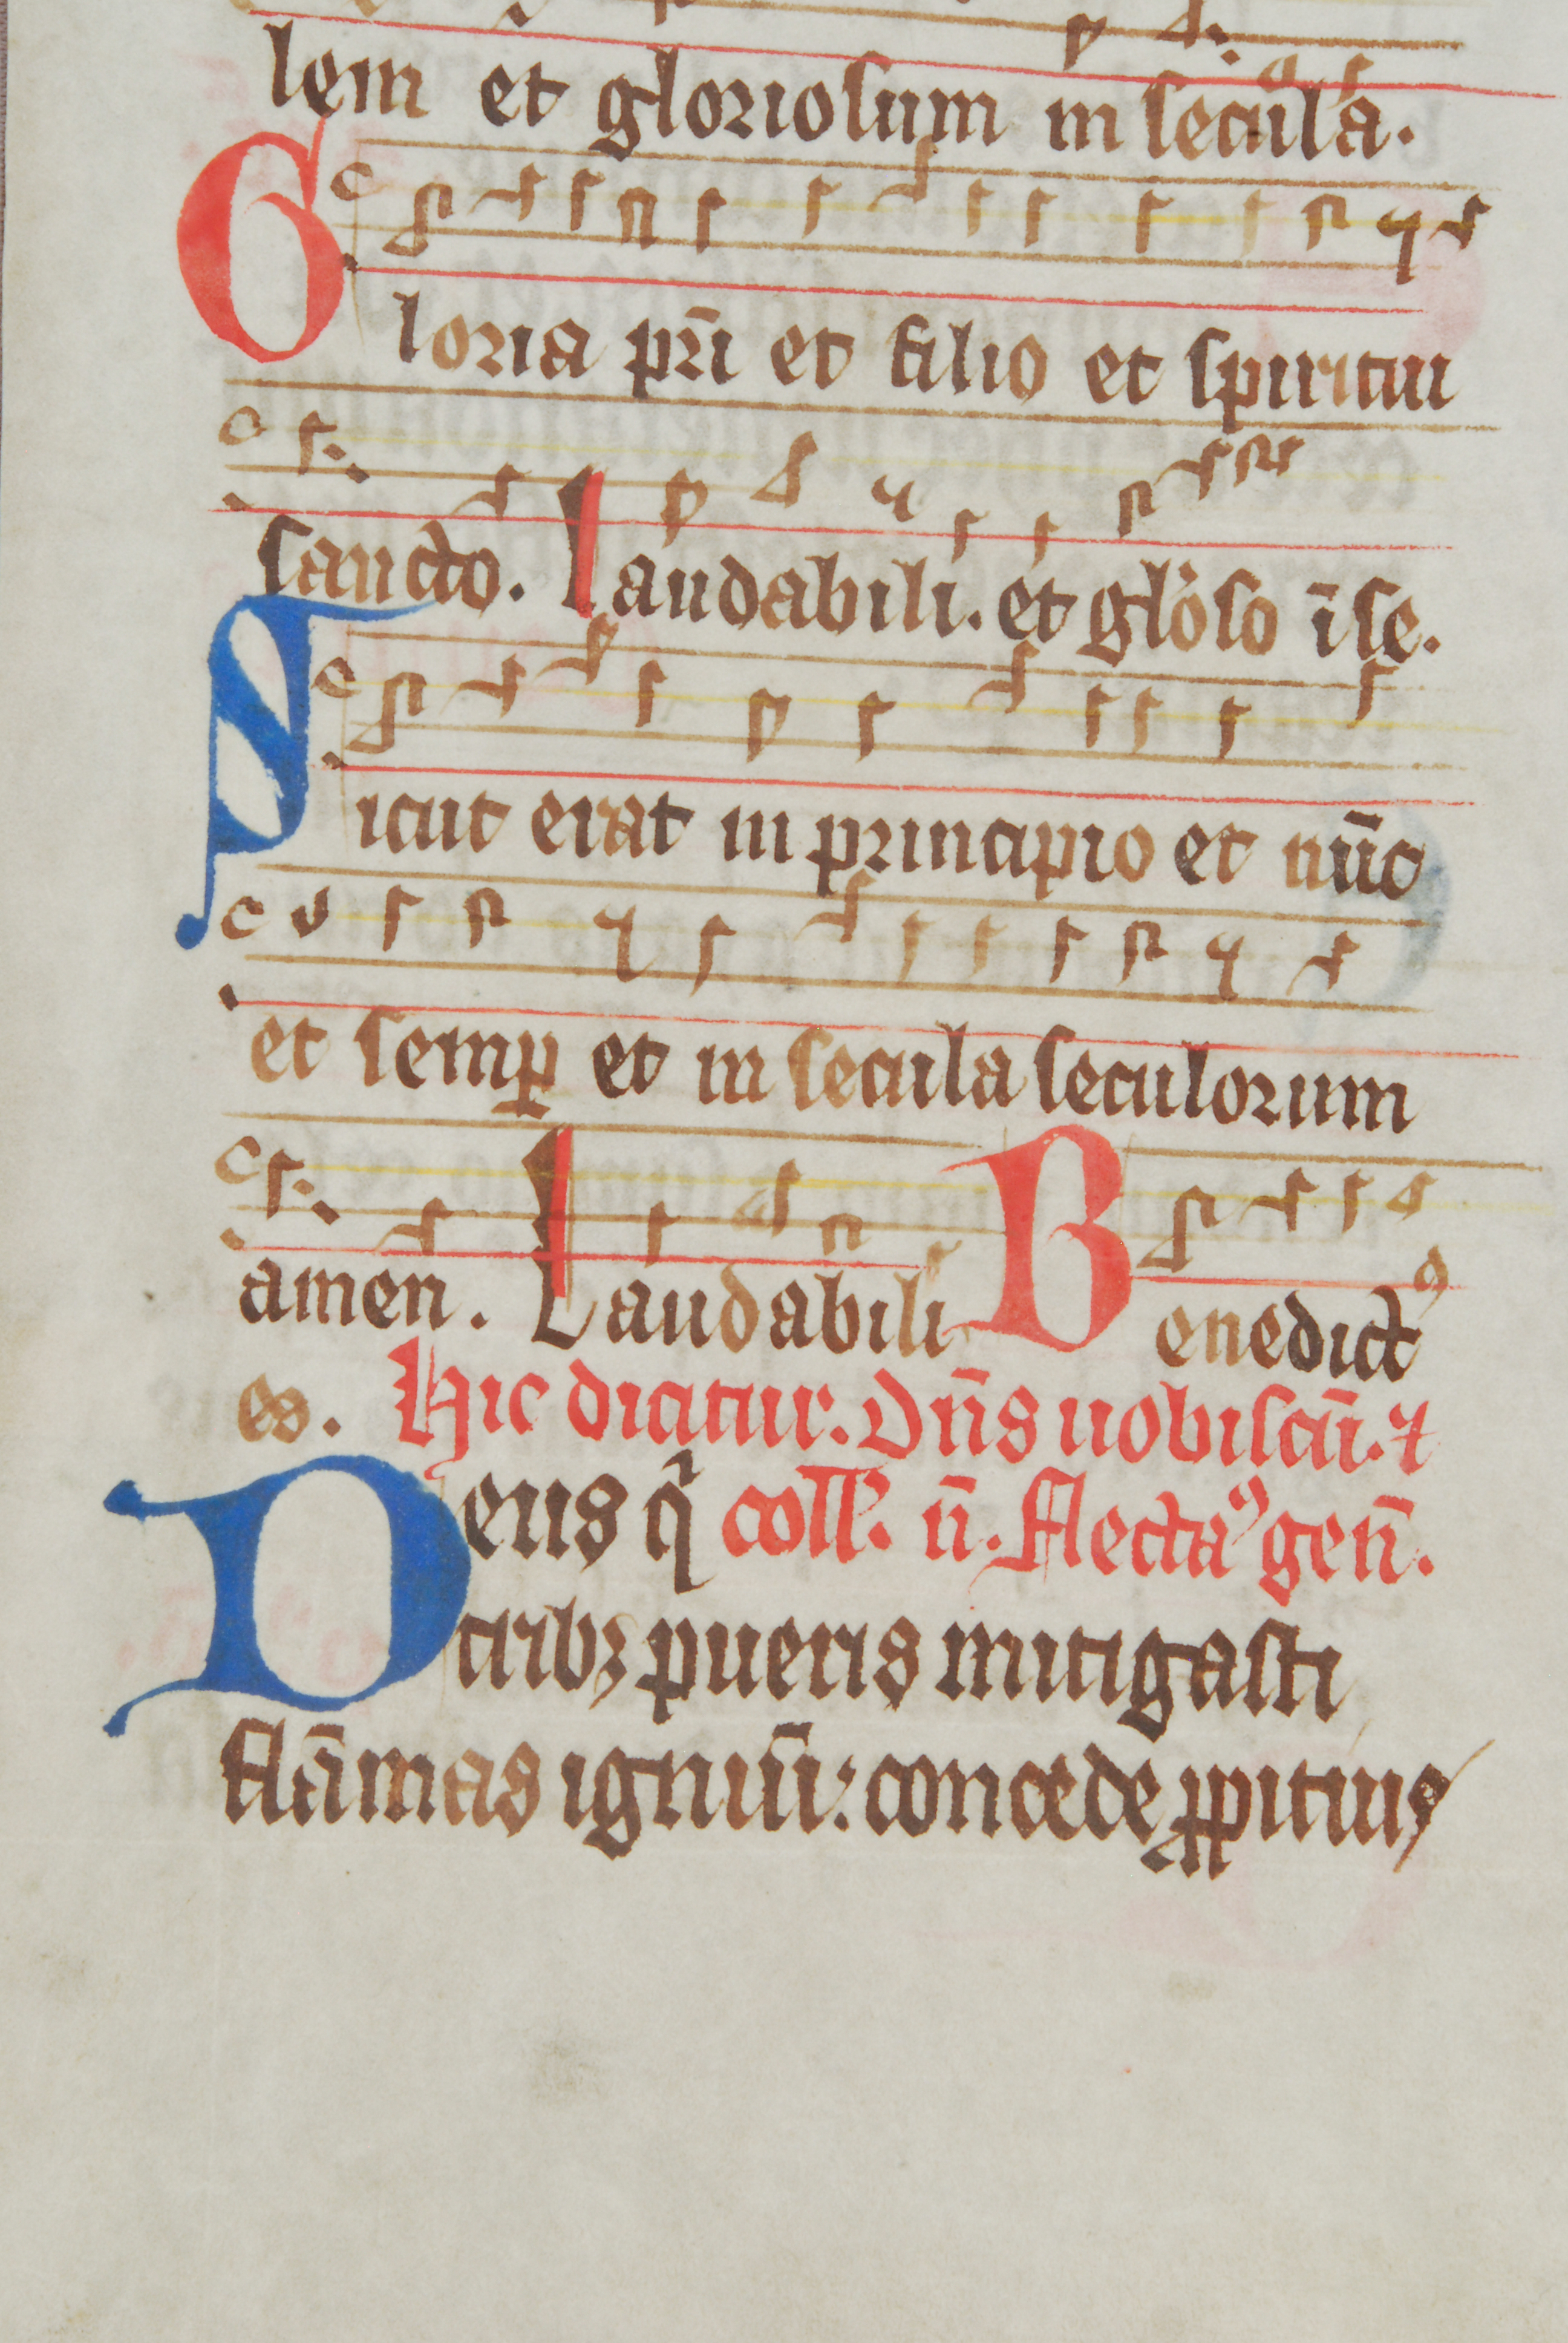 lem et gloriosum in secula.
Gloria pr̄i et filio et spiritui
sancto. Laudabili. et glo̾so ī se.
Sicut erat in principio et nūc
et semꝑ et in secula seculorum
amen. Laudabili Benedictꝰ
es. Hic dicitur. Dn̄s uobiscū. ⁊
Deus q̄ coll'. n̄. flectaꝰ gen̄.
tribꝫ pueris mitigasti
flāmas igniū: concede ꝓpitius